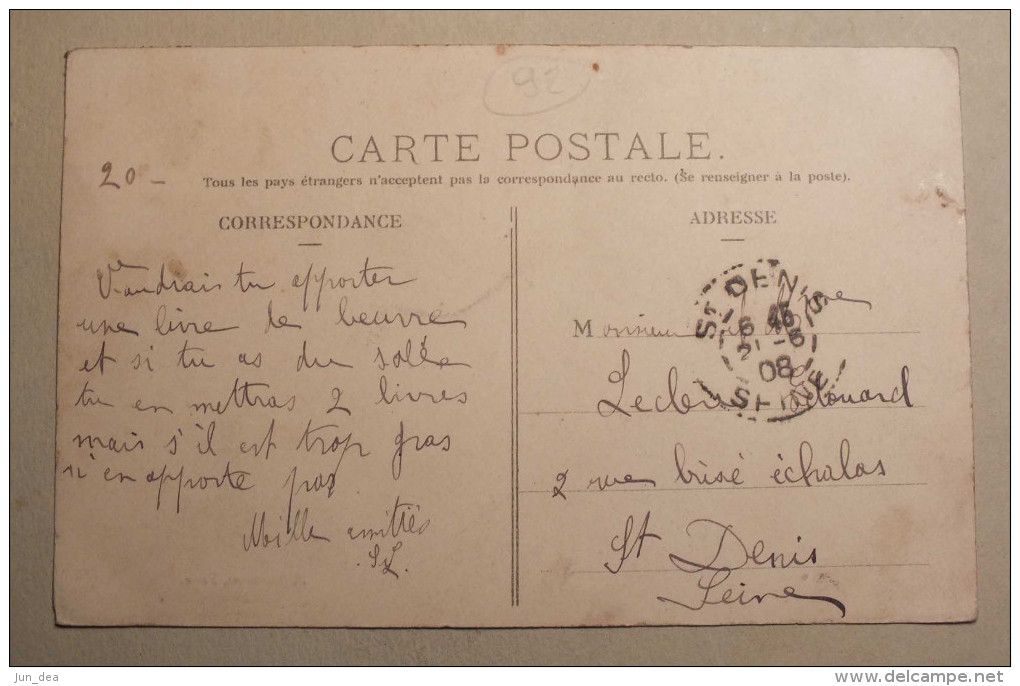 92
CARTE POSTALE.
20 -
Tous les pays étrangers n'acceptent pas la correspondance au recto. (Se renseigner à la poste).
CORRESPONDANCE
Voudrais tu apporter
une livre de beurre
et si tu as du sollé
tu en mettras 2 livres
mais s'il est trop gras
n'en apporte pas
Mille amitiés
S L.
ADRESSE
St DENIS
6 45
21 - 6
08
SEINE
Monsieur
Edouard
2 rue brisé échalas
St Denis
Seine
jun_dea
www.delcampe.net